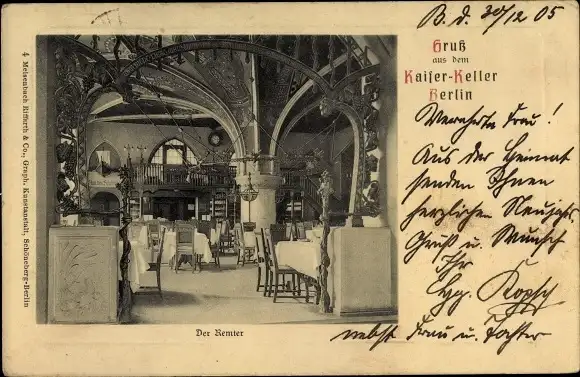 B. d. 30/12 05
Gruß
aus dem
Kaiser-Keller
Berlin
Verehrte Frau!
Aus der Heimat
senden Ihnen
herzlichen Neujahrs
Gruß u. Wunsch
Ihr
nebst Frau u. Tochter
Der Remter
4 Meisenbach Riffarth & Co., Graph. Kunstanstalt, Schöneberg-Berlin